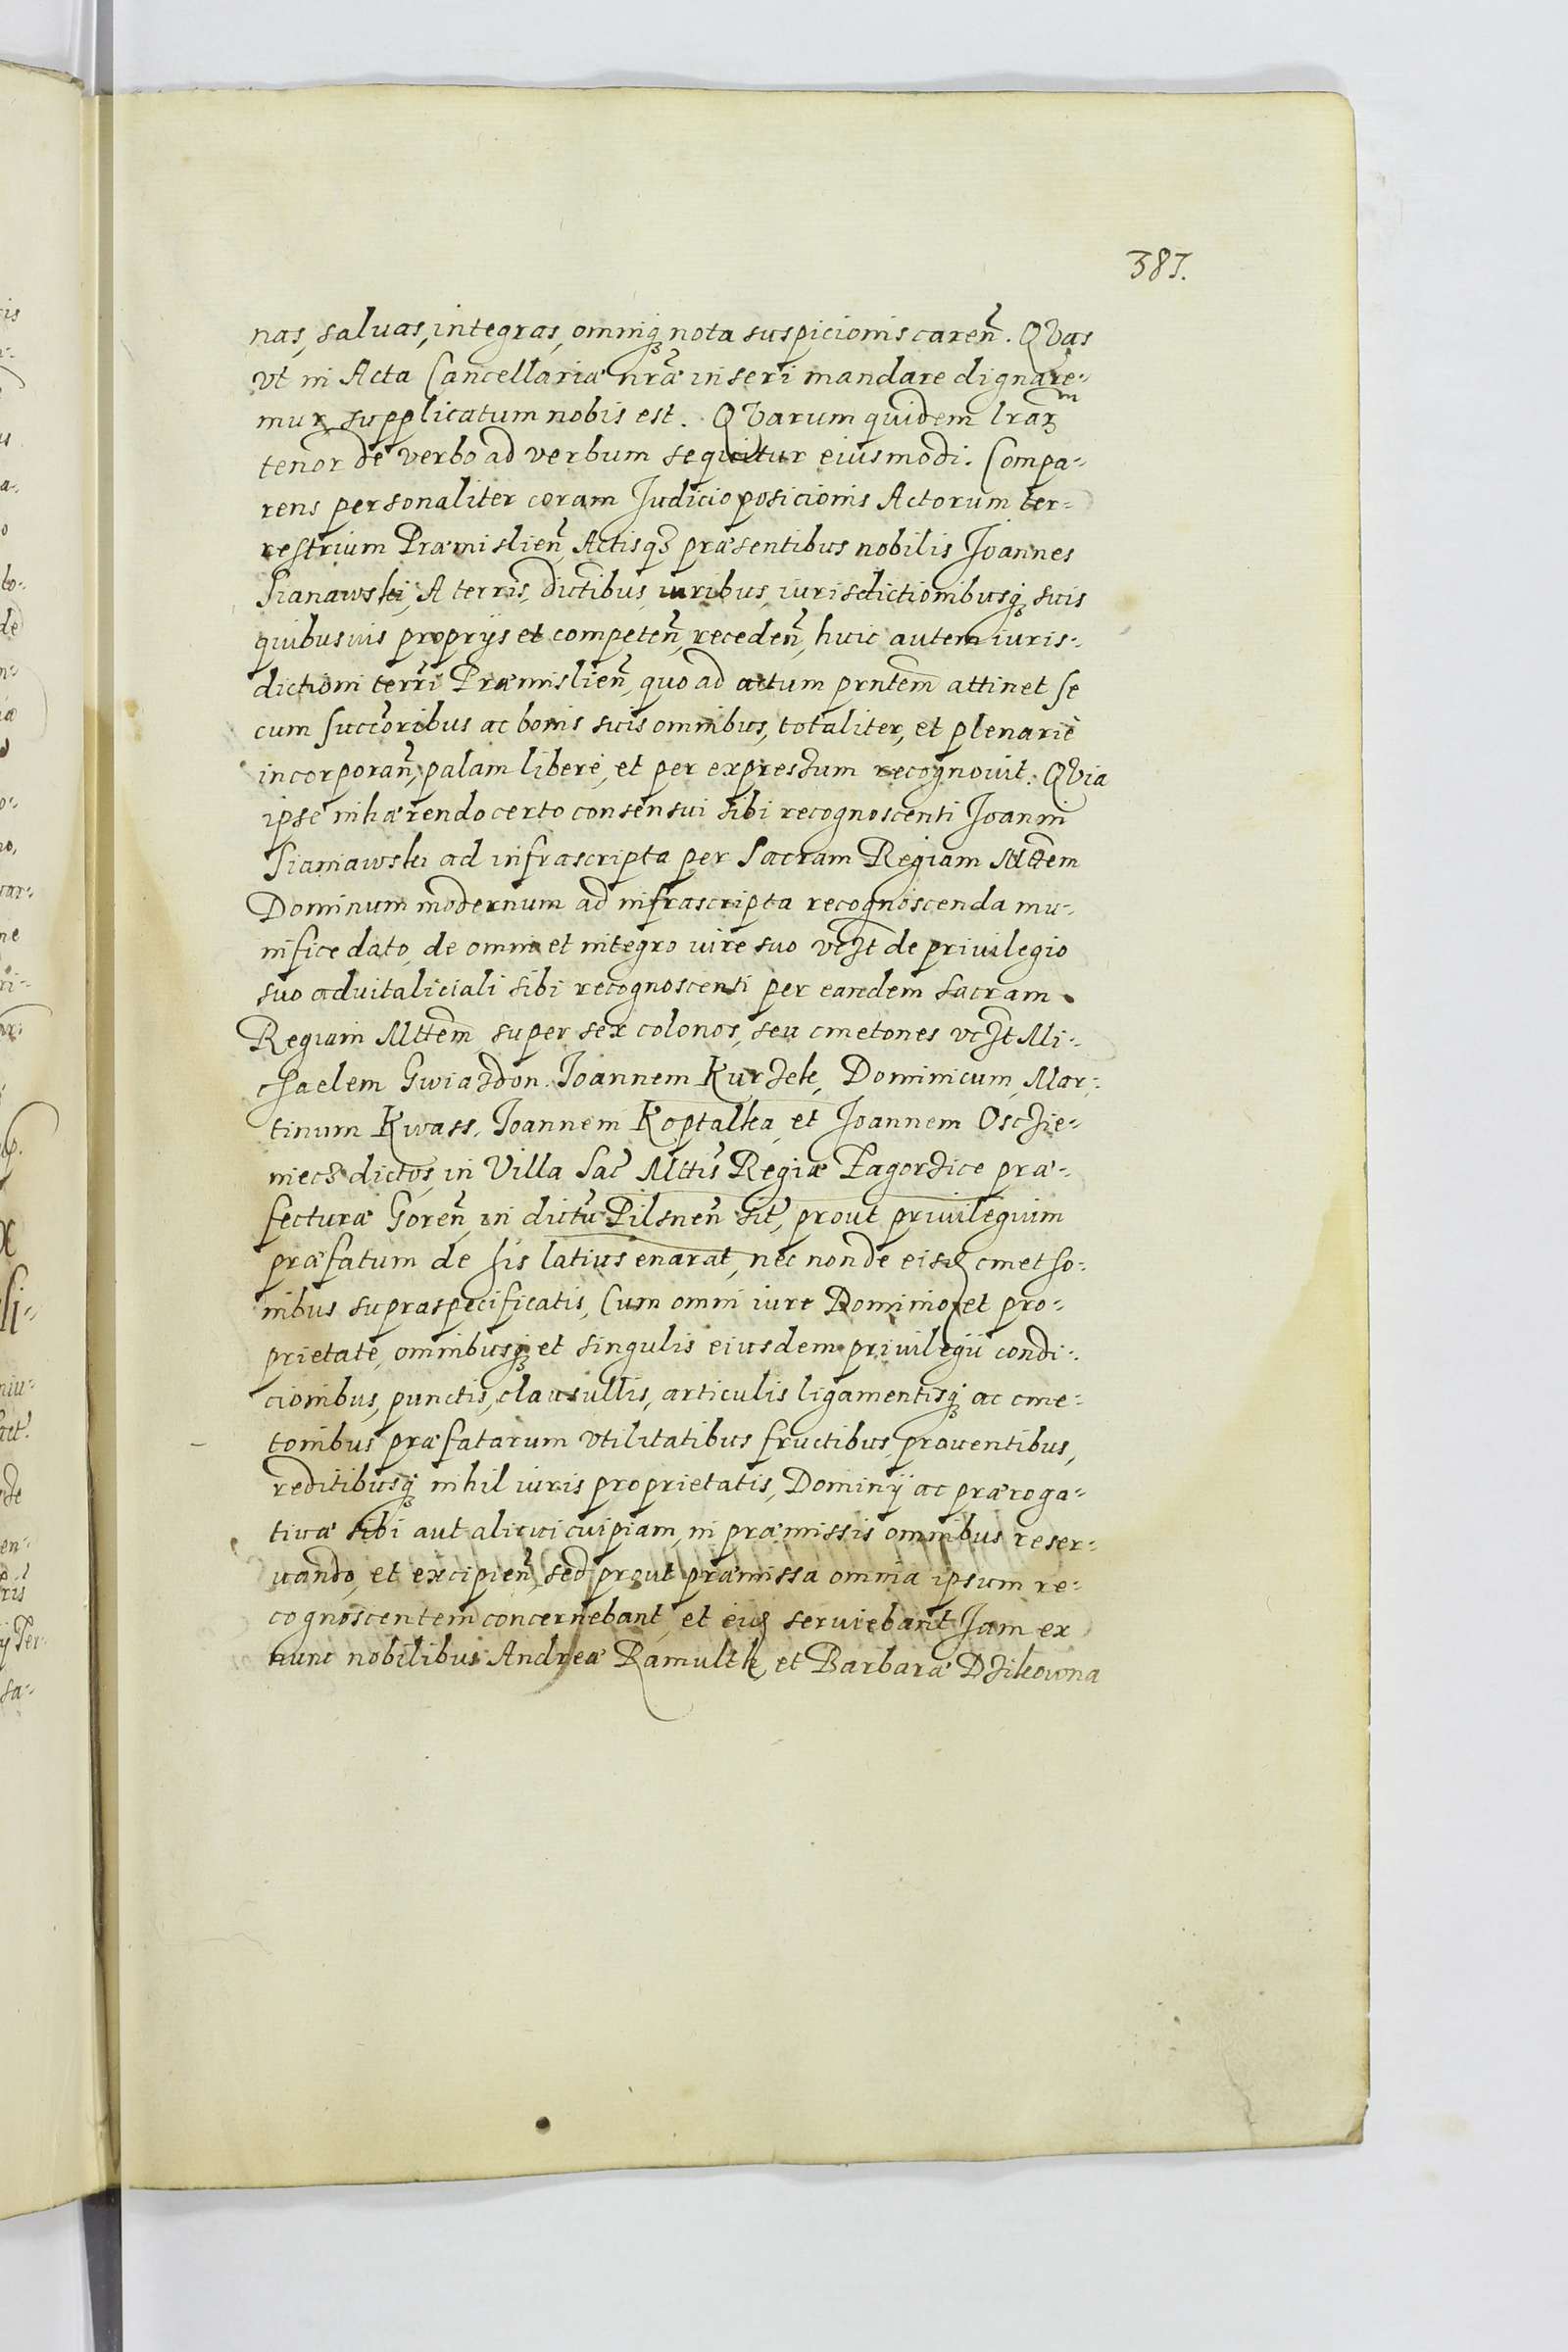 381.
nas, saluas, integras, omniq3 nota suspicionis caren̄. QVas
vt in Acta Cancellariæ nr̄æ inseri mandare dignare-
mur, supplicatum nobis est. QVarum quidem lrarum
tenor de verbo ad verbum sequitur eiusmodi. Compa-
rens personaliter coram Judicio posicionis Actorum ter-
restrium Præmislien̄, Actisq3 præsentibus nobilis Joannes
Sianawski, A terris, dictibus, iuribus, iurisdictionibusq3 suis
quibusuis proprijs et competen̄, receden̄, huic autem iuris-
dictioni terr̄i Præmislien̄, quo ad actum prn̄tem attinet se
cum succ̄oribus ac bonis suis omnibus, totaliter, et plenariè
incorporan̄, palam liberè, et per expressum recognouit. QVia
ipse inhærendo certo consensui sibi recognoscenti Joanni
Sianiawski ad infrascripta per Sacram Regiam Mttem
Dominum modernum ad infrascripta recognoscenda mu-
nifice dato, de omni et integro iure suo vc̄zt de priuilegio
suo aduitaliciali sibi recognoscenti per eandem sacram
Regiam Mttem super sex colonos, seu cmetones vc̄zt Mi-
chaelem Gwiazdon. Joannem Kurzek, Dominicum, Mar-
tinum Kwass, Joannem Koptalka, et Joannem Osczie-
niecz dictos, in Villa Sac̄ Mttis Regiæ Zagorzice præ-
fecturæ Goren̄, in dictu Pilsnen̄ sit̄, prout priuilegium
præfatum de his latius enarat, nec non de eisd cmetho-
nibus supraspecificatis, Cum omni iure Dominio, et pro-
prietate, omnibusq3 et singulis eiusdem priuilegii condi-
cionibus, punctis, clausullis, articulis ligamentisq3 ac cme-
tonibus præfatarum vtilitatibus fructibus, prouentibus,
reditibusq3 nihil iuris proprietatis, Dominij ac præroga-
tiuæ sibi aut alicui cuipiam, in præmissis omnibus reser-
uando, et excipien̄, sed prout præmissa omnia ipsum re-
cognoscentem concernebant, et eius seruiebant Jam ex
nunc nobilibus Andreæ Ramultk, et Barbaræ Dzikowna